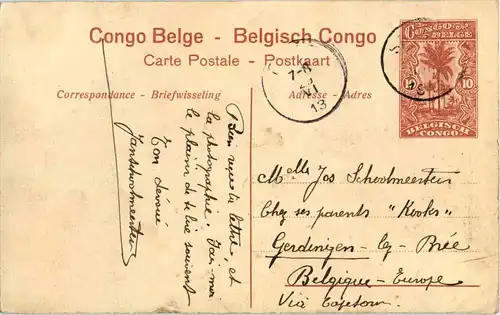 Congo Belge - Belgisch Congo
Carte Postale - Postkaart
Correspondance - Briefwisseling
Adresse - Adres
CONGO BELGE
10
10
BELGISCH
CONGO
7-8
VI
13
Bien reçu ta lettre, et
ta photographie. Fais-moi
le plaisir de te lire souvent
Ton dévoué
Janschoolmeesters
Melle Jos Schoolmeesters
Chez ses parents "Kooks"
Gerdingen - lez - Brée
Belgique - Europe
Via Capetown.